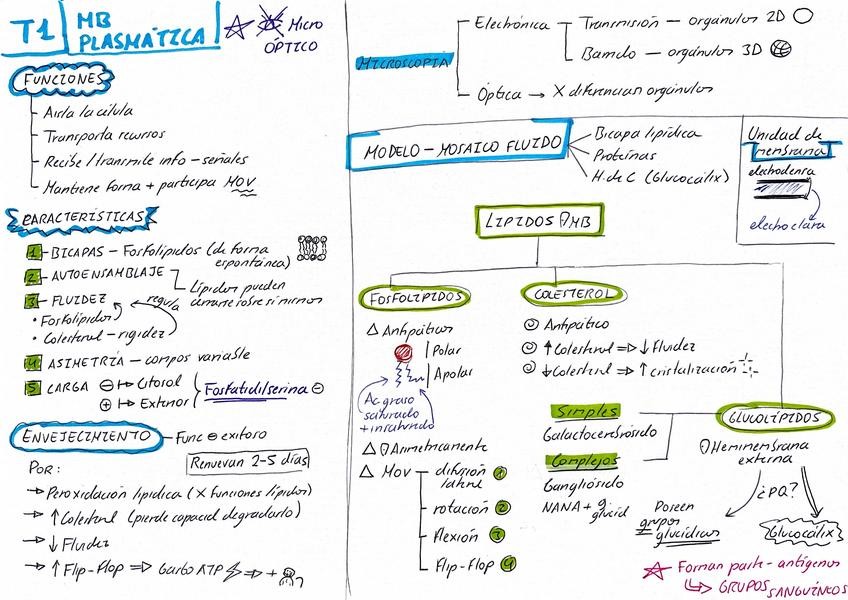 T1
MB
PLASMÁTICA
MICRO
ÓPTICO
FUNCIONES
Aisla la célula
Transporta recursos
Recibe/transmite info - señales
Mantiene forma + participa MOV
CARACTERÍSTICAS
1 - BICAPAS - Fosfolípidos (de forma
espontánea)
2 - AUTOENSAMBLAJE
Lípidos pueden
3 - FLUIDEZ
regula
• Fosfolípidos
• Colesterol - rigidez
4 ASIMETRÍA - compos variable
5 CARGA ⊖ ↦ Citosol
⊕ ↦ Exterior
Fosfatidilserina ⊖
ENVEJECIMIENTO - Func ⊖ exitoso
Renuevan 2-5 días
Por:
→ Peroxidación lipídica (X funciones lípidos)
→ ↑ Colesterol (pierde capacid degradarlo)
→ ↓ Fluidez
→ ↑ Flip-Flop ⇒ Gasto ATP ⇒ +
MICROSCOPÍA
Electrónica
Transmisión - orgánulos 2D
Barrido - orgánulos 3D
Óptica → X diferencian orgánulos
MODELO - MOSAICO FLUIDO
Bicapa lipídica
Proteínas
H. de C (Glucocálix)
Unidad de
membrana
electrodensa
electroclara
LÍPIDOS MB
FOSFOLÍPIDOS
△ Antipáticos
Polar
Apolar
Ac graso
saturado
+ insaturado
△ Asimetricamente
△ Mov
difusión 1
lateral
rotación 2
flexión 3
Flip-Flop 4
COLESTEROL
Antipático
↑ Colesterol ⇒ ↓ Fluidez
↓ Colesterol ⇒ ↑ cristalización
GLUCOLÍPIDOS
Hemimembrana
externa
Simples
Galactocerebrósido
Complejos
Gangliósido
NANA + g.
glucid
¿PQ?
Poseen
grupos
glucídicos
Glucocálix
Forman parte - antígenos
GRUPOS SANGUÍNEOS